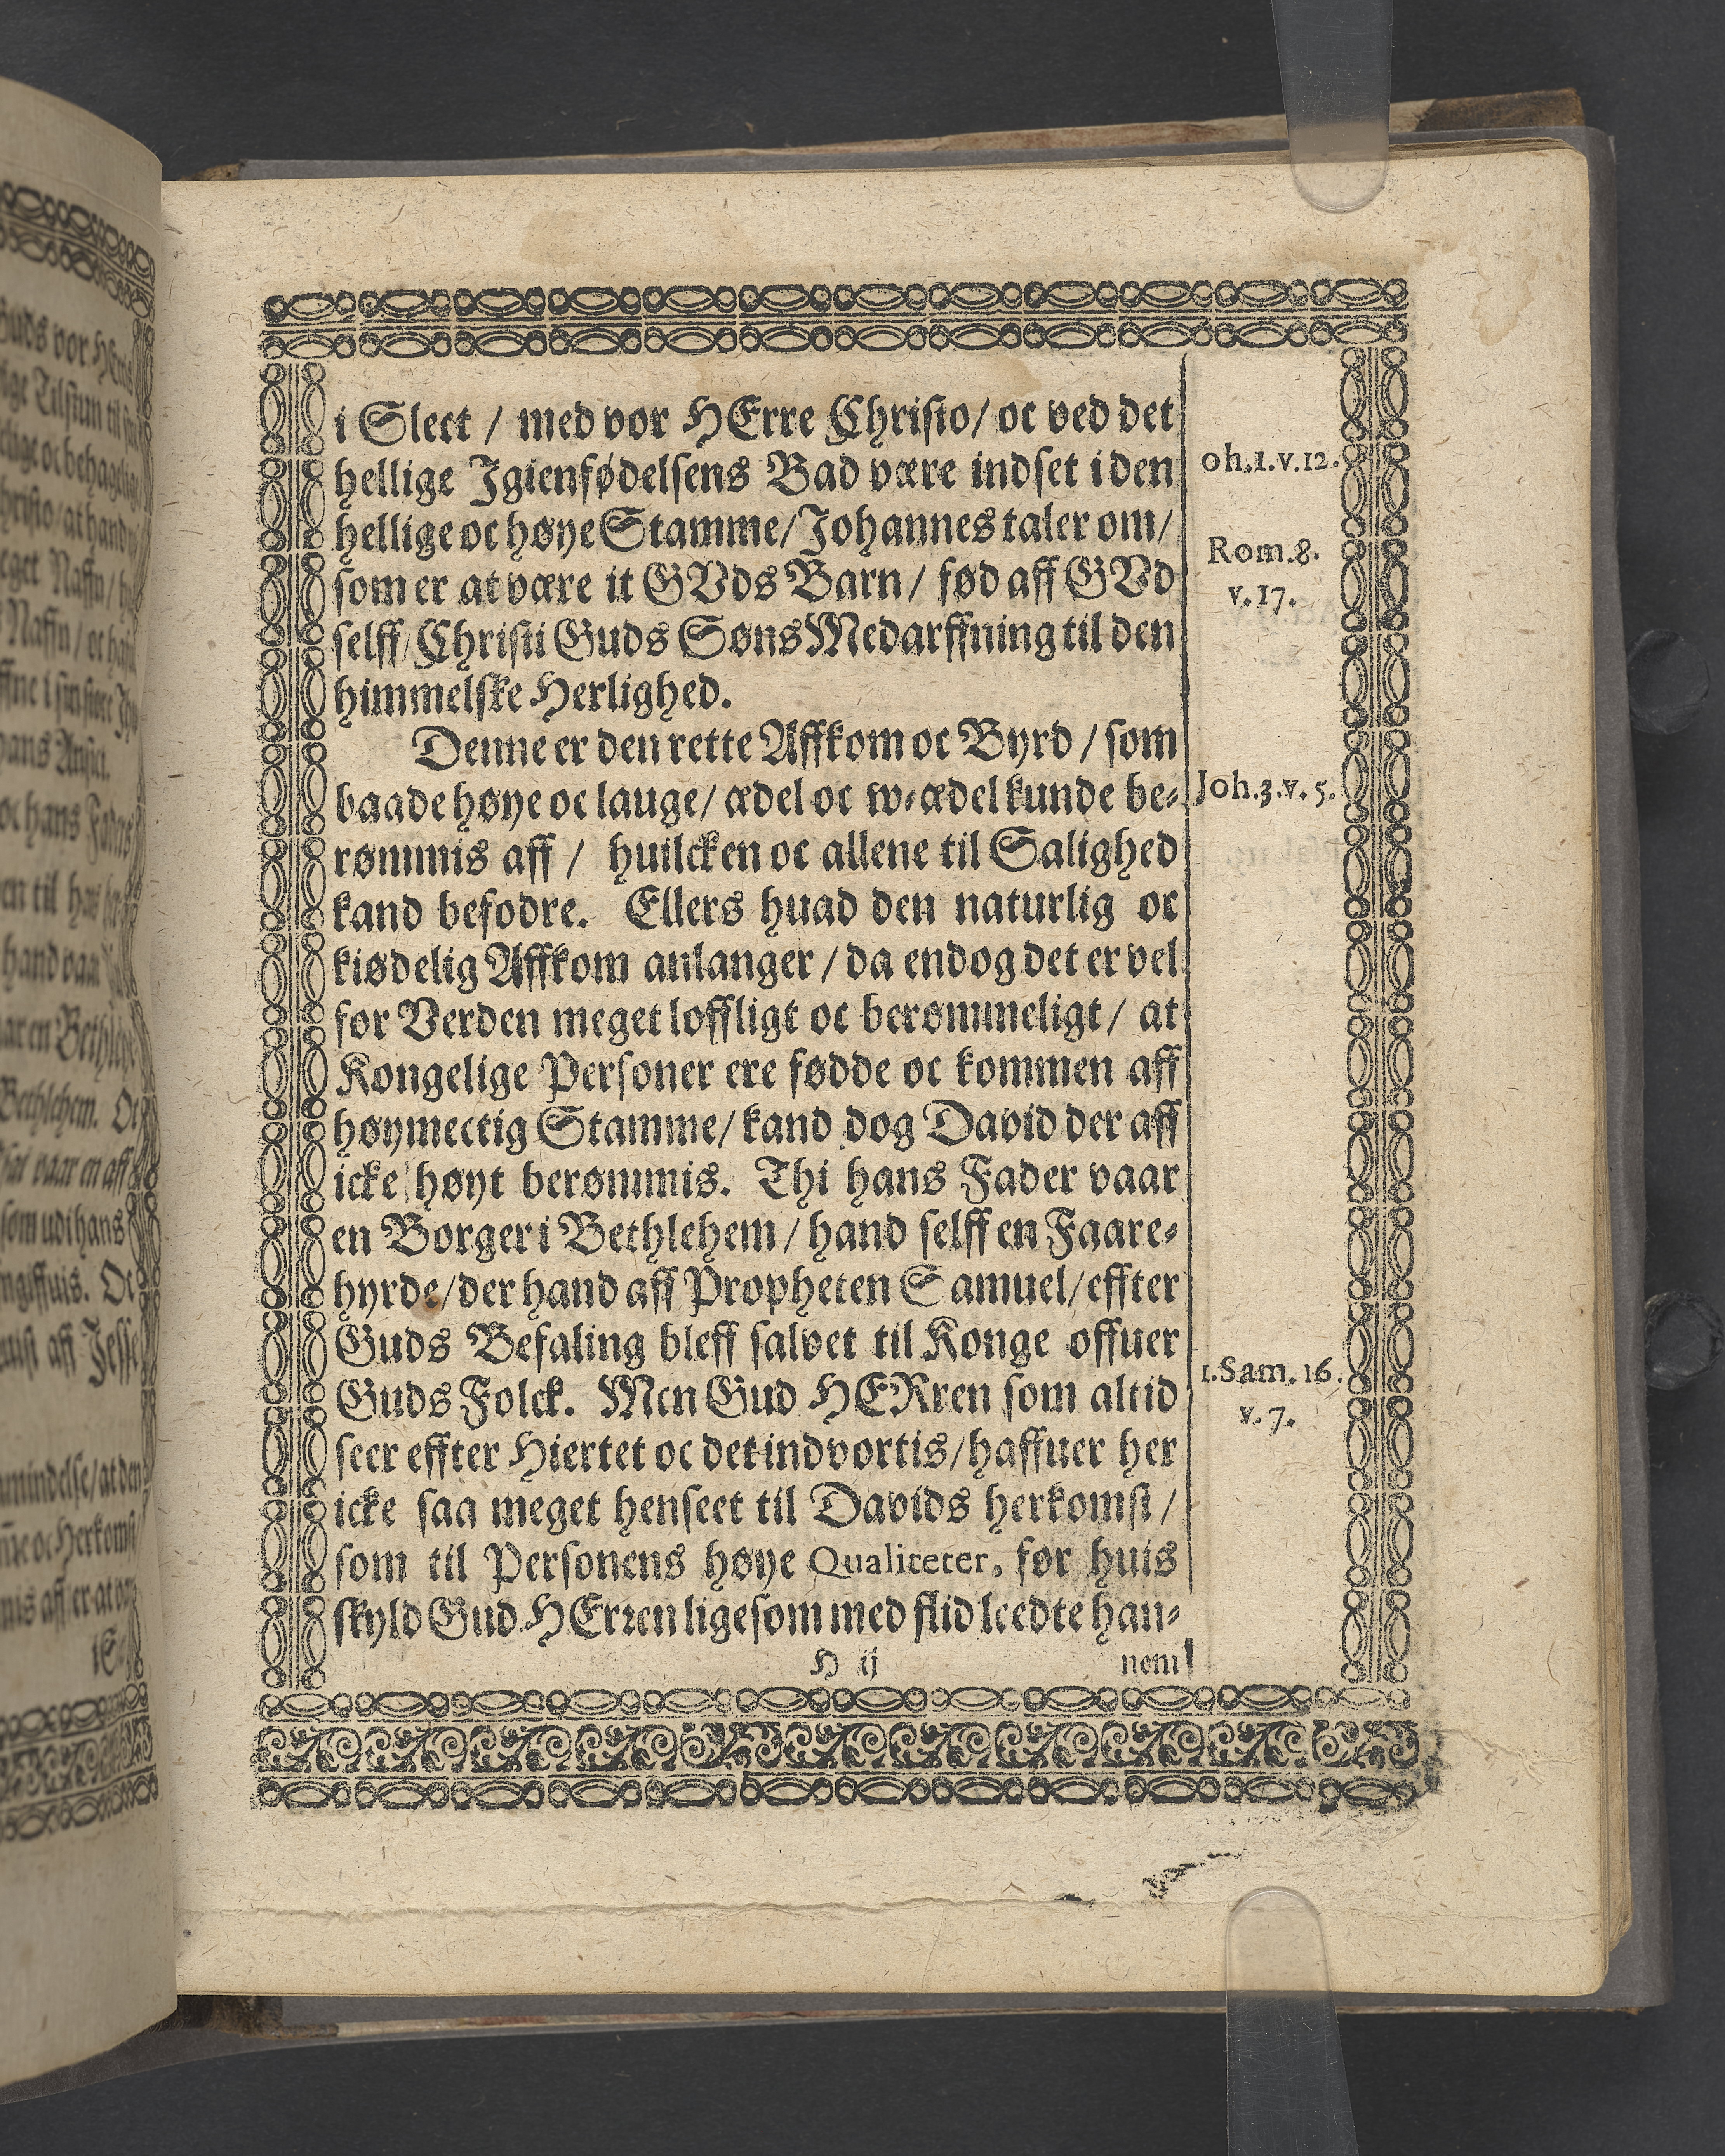 i Slect / med vor HErre Christo / oc ved det
hellige Igienfødelsens Bad være indset i den
hellige oc høye Stamme / Johannes taler om /
som er at være it GVds Barn / fød aff GVd
selff / Christi Guds Søns Medarffning til den
himmelske Herlighed.
Denne er den rette Affkom oc Byrd / som
baade høye oc lauge / ædel oc w-ædel kunde be-
rømmis aff / huilcken oc allene til Salighed
kand befodre. Ellers huad den naturlig oc
kiødelig Affkom anlanger / da endog det er vel
for Verden meget loffligt oc berømmeligt / at
Kongelige Personer ere fødde oc kommen aff
høymectig Stamme / kand dog David der aff
icke høyt berømmis. Thi hans Fader vaar
en Borger i Bethlehem / hand selff en Faare-
hyrde / der hand aff Propheten Samuel / effter
Guds Befaling bleff salvet til Konge offuer
Guds Folck. Men Gud HERren som altid
seer effter Hiertet oc det indvortis / haffuer her
icke saa meget henseet til Davids herkomst /
som til Personens høye Qualiteter, for huis
skyld Gud HErren ligesom med flid leedte han-
H ij nem
oh.1.v.12.
Rom.8.
v.17.
Joh.3.v.5.
1.Sam.16.
v.7.